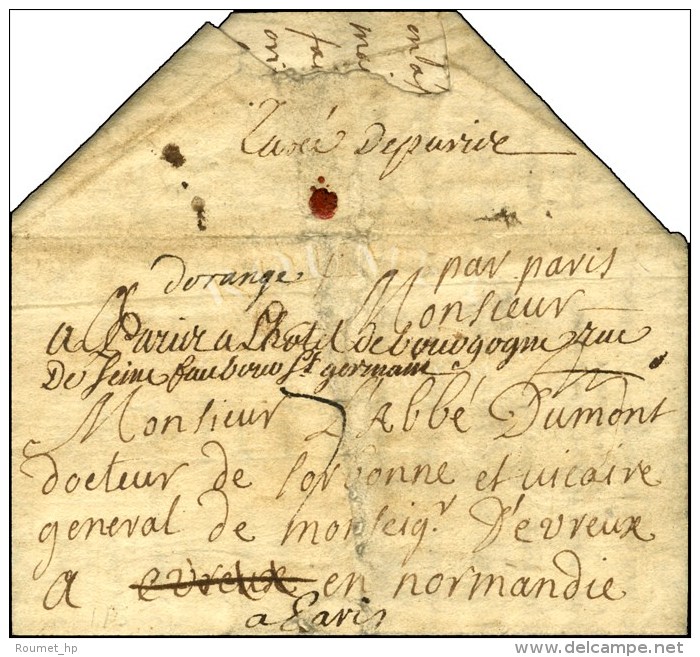 en la
ma
fa
on
Taxée de paris
dorange
par paris
Monsieur
a Paris a Lhotel de bourgogne rue
De Seine faubour St germain
Monsieur L'abbé Dumont
docteur de sorbonne et vicaire
general de monseigr D'evreux
a evreux en normandie
a Paris
Roumet_hp
www.delcampe.net